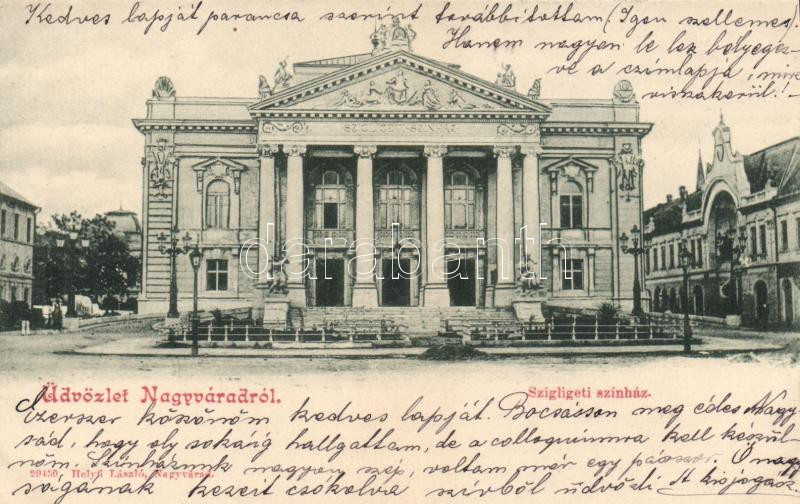 Kedves lapját parancsa szerint továbbítottam (Igen szellemes)
Hanem nagyon le lez bélyegez-
ve a czímlapja, mire
visszakerül! -
SZIGLIGETI SZINHÁZ
darabanth.com
Üdvözlet Nagyváradról.
Szigligeti színház.
Ezerszer köszönöm kedves lapját. Bocsásson meg édes Nagy-
sád, hogy oly sokáig hallgattam, de a colloquiumra kell készül-
nöm. Színházunk nagyon szép, voltam már egy párszor. Ő nagy-
29459. Helyfi László, Nagyvárad.
ságának kezeit csókolva szívből üdvözli: A kis jogász